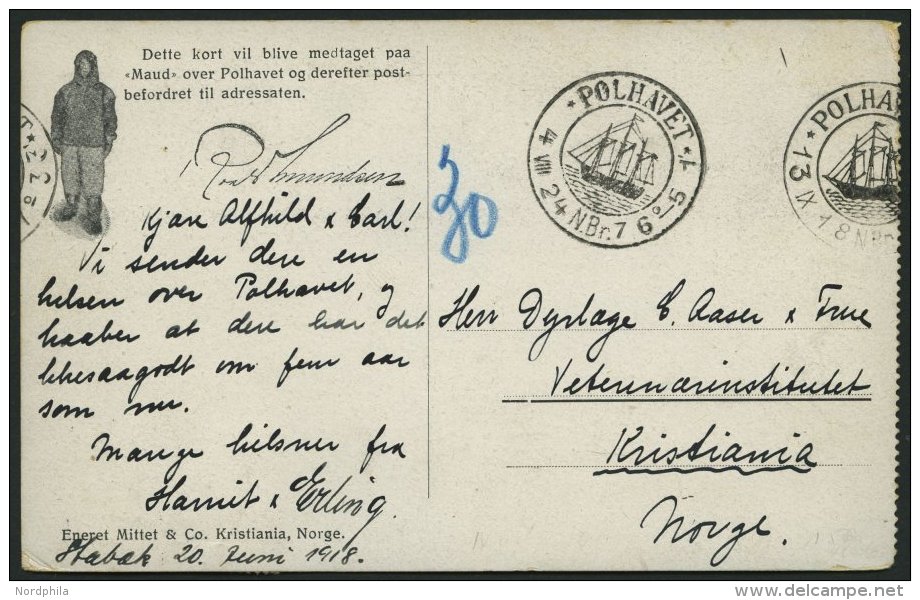 Dette kort vil blive medtaget paa
«Maud» over Polhavet og derefter post-
befordret til adressaten.
Roald Amundsen
Kjære Alfhild & Carl!
Vi sender dere en
helsen over Polhavet, og
haaber at dere har det
likesaagodt om fem aar
som nu.
Mange hilsner fra
Harriet & Erling.
Eneret Mittet & Co. Kristiania, Norge.
Stabæk 20. Juni 1918.
30
* POLHAVET *
4 VIII 24 N.Br. 76°-5
* POLHAV
13 IX 18 N.Br.
Herr Dyrlæge C. Aaser & Frue
Veterenærinstitutet
Kristiania
Norge.
© Nordphila